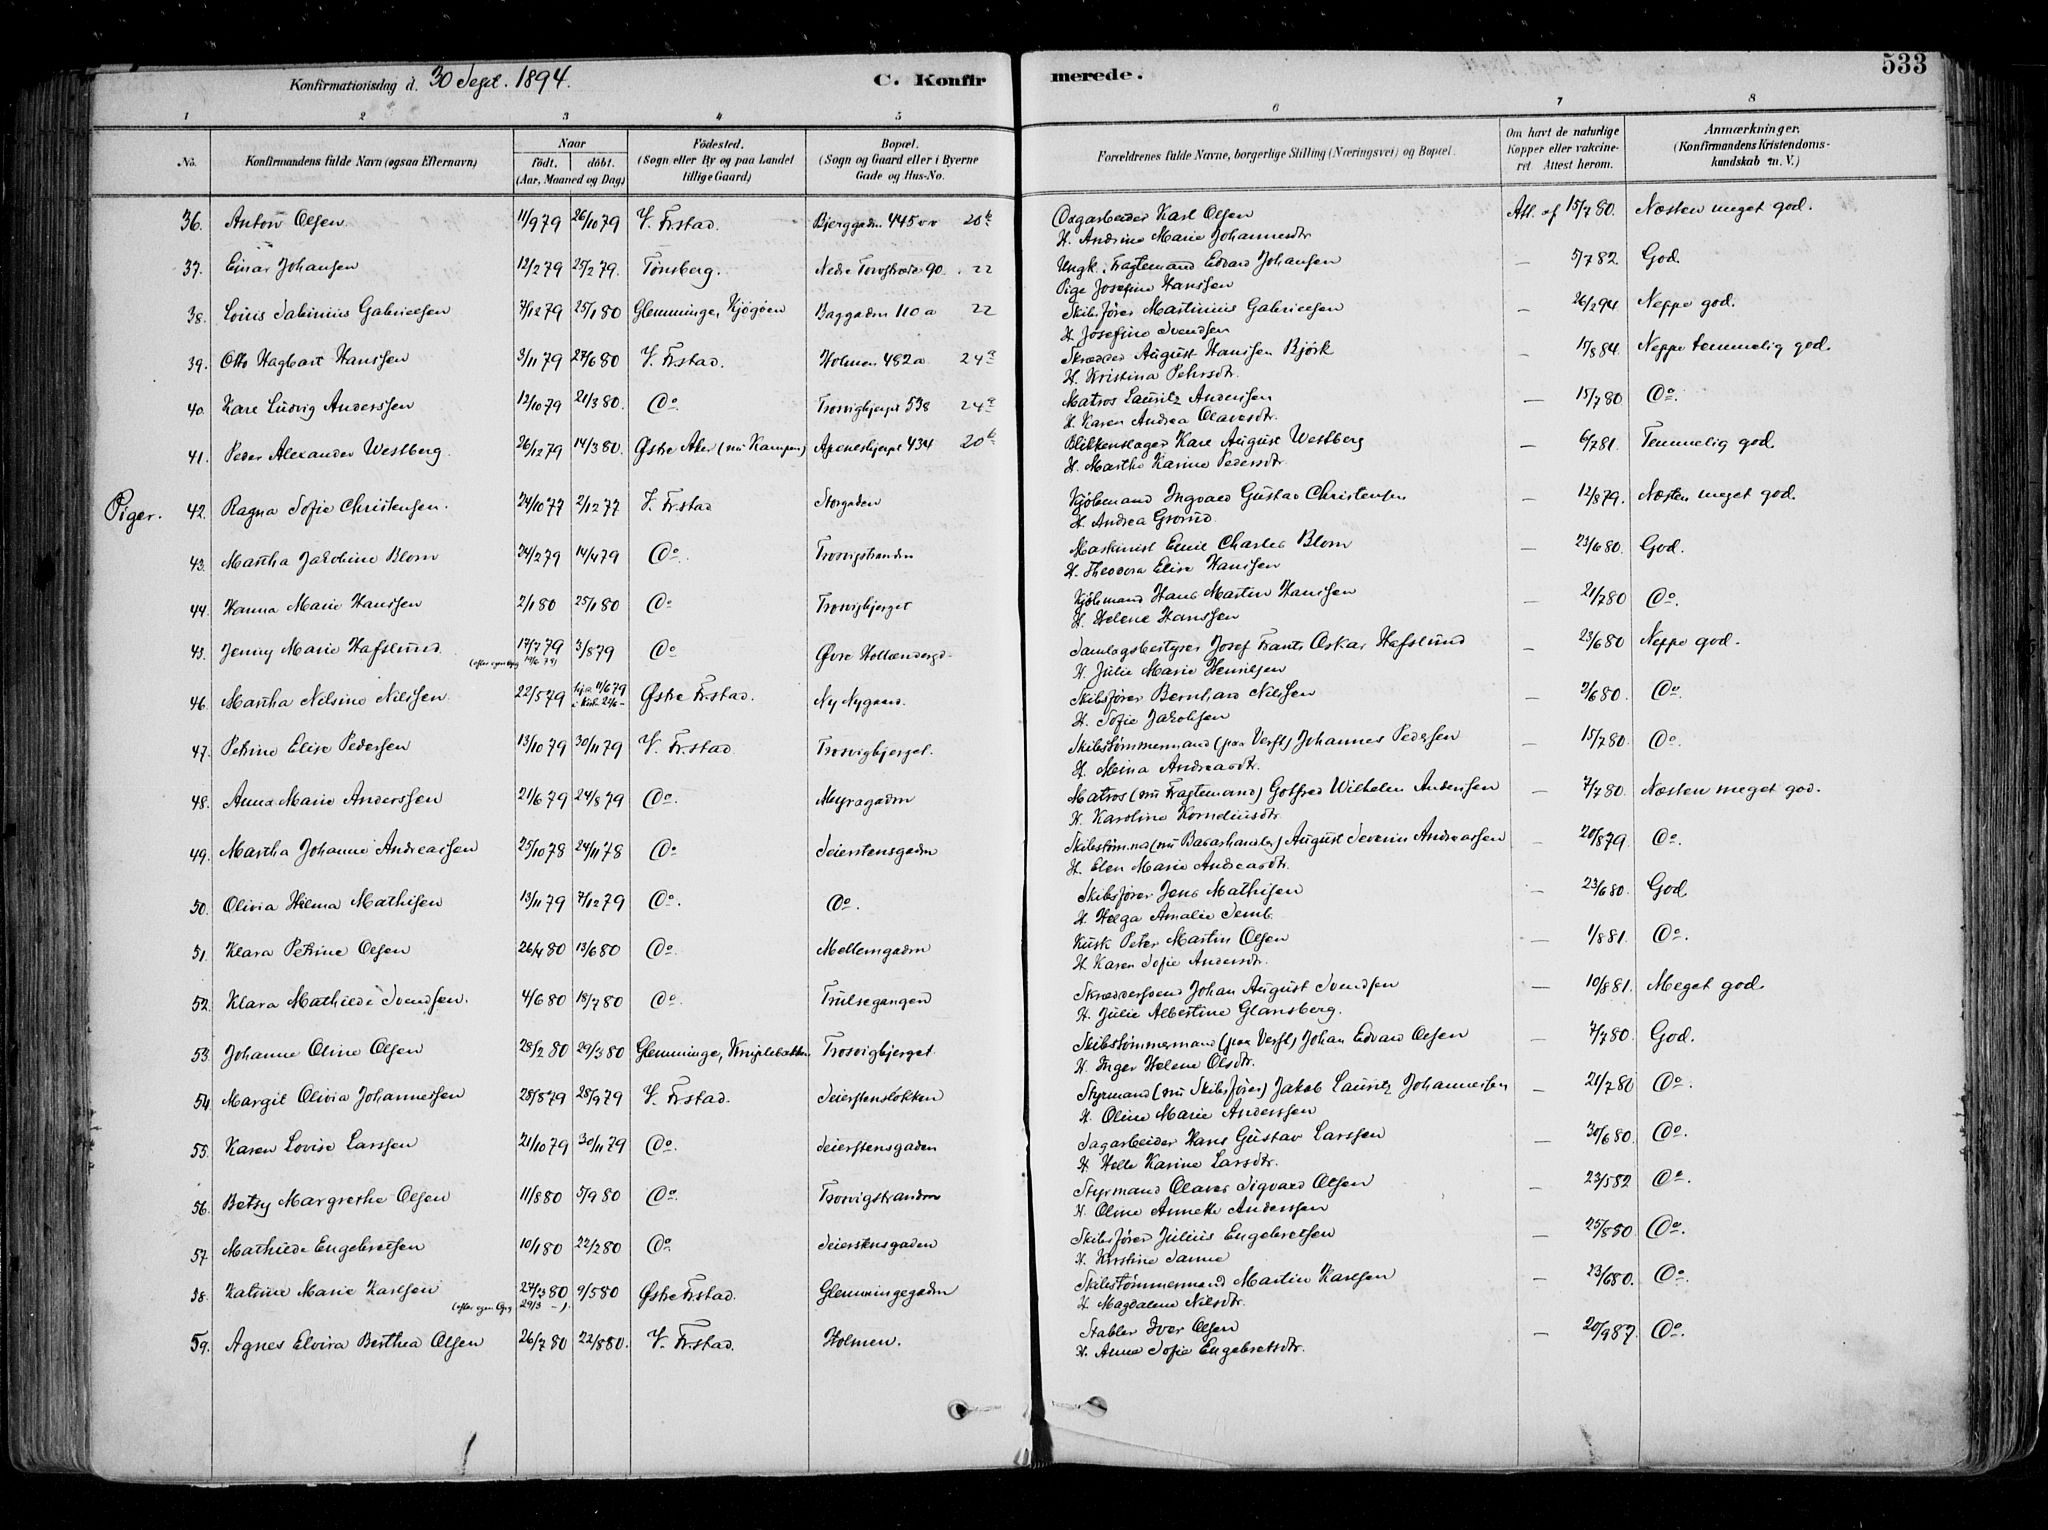 Konfirmationsdag d. 30 Sept. 1894. C. Konfirmerede. 533
1 2 3 4 5 6 7 8
No. Konfirmandens fulde Navn (ogsaa Efternavn) Naar født. døbt. (Aar, Maaned og Dag) Fødested. (Sogn eller By og paa Landet tillige Gaard) Bopæl. (Sogn og Gaard eller i Byerne Gade og Hus-No. Forældrenes fulde Navne, borgerlige Stilling (Næringsvei) og Bopæl. Om havt de naturlige Kopper eller vakcineret. Attest herom. Anmærkninger. (Konfirmandens Kristendomskundskab m. V.)
36. Anton Olsen 11/9 79 26/10 79 V. Fr.stad. Bjerggadn 445 20 b Karl Olsen Att. af 15/7 80. Næsten meget god.
H. Andrine Marie Johannesdtr
37. Einar Johansen 12/2 79 25/2 79. Tønsberg. Nedre Torvstræde 90. 22 Ungk. Fragtemand Edvard Johansen — 5/7 82. God.
Pige Josefine Hanssen
38. Louis Sabinius Gabrielsen 7/12 79 25/1 80 Glemminge, Kjøgøen Baggadn 110 a 22 Skibsfører Martinius Gabrielsen — 26/2 94. Neppe god.
H. Josefine Svendsen
39. Otto Hagbart Hanssen 3/11 79 27/6 80 V. Fr.stad. Holmen 482 a 24 a Skrædder August Hanssen Björk — 15/8 84. Neppe temmelig god.
H. Kristina Pehrsdtr.
40. Karl Ludvig Anderssen 12/10 79 21/3 80. Do. Trosvigbjerget 538 24 a Matros Lauritz Anderssen — 15/7 80 Do.
H. Karen Andrea Olavesdtr.
41. Peder Alexander Westberg. 26/12 79 14/3 80. Østre Aker (nu Kampen) Apenesbjerget 434 20 b Blikkenslager Karl August Westberg — 6/7 81. Temmelig god.
H. Marthe Karine Pedersdtr.
Piger. 42. Ragna Sofie Christensen. 24/10 77 2/12 77 V. Fr.stad Storgaden Kjøbmand Ingvald Gustav Christensen — 12/8 79. Næsten meget god.
H. Andrea Grorud.
43. Martha Jakobine Blom 24/2 79 14/4 79 Do. Trosvigstranden Maskinist Emil Charles Blom — 23/6 80. God.
H. Theodora Elise Hanssen
44. Hanna Marie Hanssen 2/1 80 25/1 80 Do. Trosvigbjerget Kjøbmand Hans Martin Hanssen — 21/7 80 Do.
H. Helene Hanssen
45. Jenny Marie Hafslund 17/7 79 3/8 79 Do Øvre Hollænderg. Samlagsbestyrer Josef Frants Oskar Hafslund — 23/6 80 Neppe god.
(efter egen Opg 14/6 79) H. Julie Marie Henriksen
46. Martha Nilsine Nilssen. 22/5 79 hj.d. 11/6 79 i Kirk. 22/6 – Østre Fr.stad. Ny Nygaard. Skibsfører Bernhard Nilssen — 2/6 80. Do.
H. Sofie Jakobsen
47. Petrine Elise Pedersen 13/10 79 30/11 79 V. Fr.stad. Trosvigbjerget. Skibstømmermand (paa Verft) Johannes Pedersen — 15/7 80. Do.
H. Mina Andreasdtr.
48. Anna Marie Anderssen 21/6 79 24/8 79 Do. Myragadn Matros (nu Fragtemand) Gotfred Wilhelm Anderssen — 7/7 80. Næsten meget god.
H. Karoline Korneliusdtr.
49. Martha Johanne Andreassen 25/10 78 24/11 78 Do. Seierstensgadn Skibstøm.md (nu ) August Severin Andreassen — 20/8 79. Do.
H. Elen Marie Andreasdtr.
50. Olivia Helma Mathisen 13/11 79 7/12 79 Do. Do. Skibsfører Jens Mathisen — 23/6 80. God
H. Helga Amalie Semb
51. Klara Petrine Olsen 26/4 80 13/6 80 Do. Mellemgadn Kusk Peter Martin Olsen — 1/8 81. Do.
H. Karen Sofie Andersdtr.
52. Klara Mathilde Svendsen. 4/6 80 18/7 80 Do. Trulsegangen Skræddersvend Johan August Svendsen — 10/8 81. Meget god
H. Julie Albertine Glansberg.
53. Johanne Oline Olsen 28/2 80 29/3 80 Glemminge, Kniplebakken Trosvigbjerget Skibstømmermand (paa Verft) Johan Edvard Olsen — 7/7 80. God.
H. Inger Helene Olsdtr.
54. Margit Olivia Johannessen 28/8 79 28/9 79 V. Fr.stad. Seierstensløkken Styrmand (nu Skibsfører) Jakob Lauritz Johannessen — 21/7 80 Do.
H. Oline Marie Anderssen
55. Karen Lovise Larssen 21/10 79 30/11 79 Do. Seierstensgaden Dagarbeider Hans Gustav Larssen — 30/6 80. Do.
H. Helle Karine Larsdtr.
56. Betsy Margrethe Olsen 11/8 80 5/9 80 Do. Trosvigstrandn Styrmand Olaves Sigvard Olsen — 23/5 82 Do.
H. Oline Annette Anderssen
57. Mathilde Engebretsen 10/1 80 22/2 80 Do. Seierstensgaden Skibsfører Julius Engebretsen — 25/8 80 Do.
H. Kirstine Sanne
58. Katrine Marie Karlsen 27/3 80 9/5 80 Østre Fr.stad. Glemmingegadn Skibstømmermand Martin Karlsen — 23/6 80. Do.
(efter egen Opg 29/3 –). H. Magdalene Nilsdtr.
59. Agnes Elvira Berthea Olsen 26/7 80 22/8 80. V. Fr.stad. Holmen. Stabler Iver Olsen — 20/9 87. Do.
H. Anne Sofie Engebretsdtr.